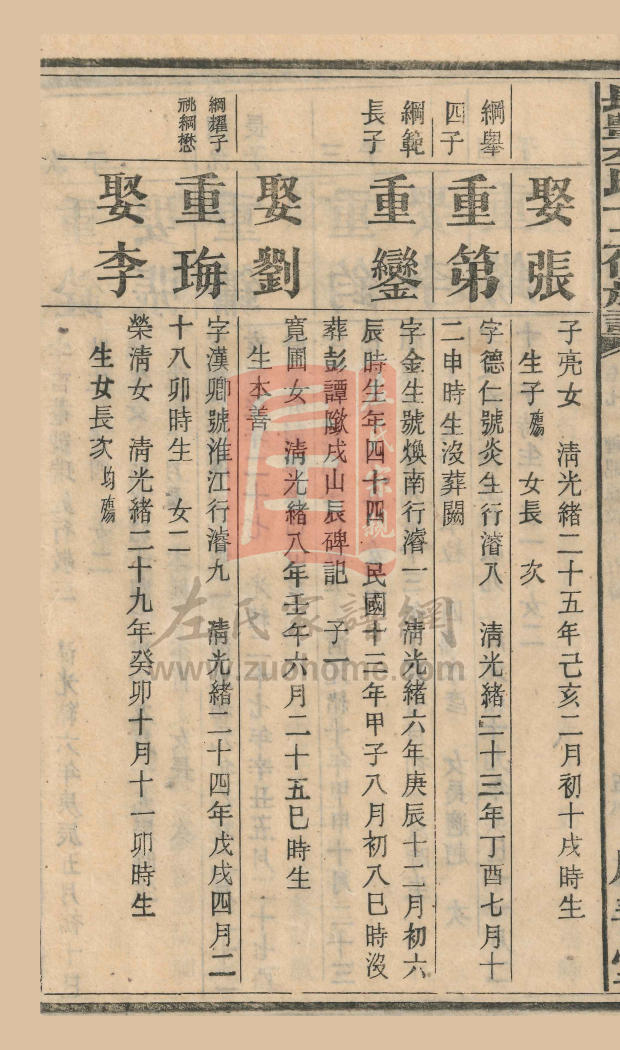 娶張
子亮女 清光緒二十五年己亥二月初十戌時生
生子殤 女長 次
綱舉
四子
重第
字德仁號炎生行濬八 清光緒二十三年丁酉七月十
二申時生沒葬闕
綱範
長子
重鑾
字金生號煥南行濬一 清光緒六年庚辰十二月初六
辰時生年四十四 民國十三年甲子八月初八巳時沒
葬彭譚陂戌山辰碑記 子一
娶劉
寬圃女 清光緒八年壬午六月二十五巳時生
生本善
綱耀子
祧綱懋
重珻
字漢卿號淮江行濬九 清光緒二十四年戊戌四月二
十八卯時生 女二
娶李
榮清女 清光緒二十九年癸卯十月十一卯時生
生女長次均殤
左氏家譜網
www.zuohome.com